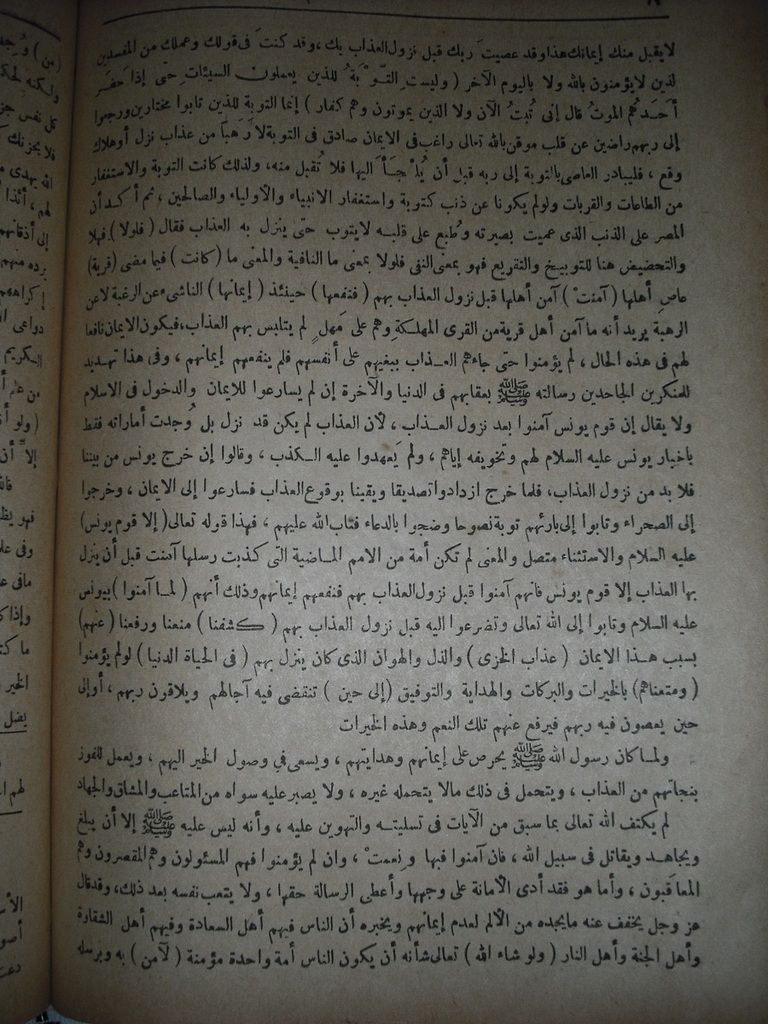 لا يقبل منك إيمانك هذا وقد عصيت ربك قبل نزول العذاب بك ، وقد كنت فى قولك وعملك من المفسدين
لذين لا يؤمنون بالله ولا باليوم الآخر ( وليست التوبة للذين يعملون السيئات حتى إذا حضر
أحدهم الموت قال إنى تبت الآن ولا الذين يموتون وهم كفار ) إنما التوبة للذين تابوا مختارين ورجعوا
إلى ربهم راضين عن قلب موقن بالله تعالى راغب فى الايمان صادق فى التوبة لا رهبا من عذاب نزل أو هلاك
وقع ، فليبادر العاصى بالتوبة إلى ربه قبل أن يلجأ اليها فلا تقبل منه، ولذلك كانت التوبة والاستغفار
من الطاعات والقربات ولو لم يكونا عن ذنب كتوبة واستغفار الانبياء والأولياء والصالحين ، ثم أكد أن
المصر على الذنب الذى عميت بصيرته وطبع على قلبه لا يتوب حتى ينزل به العذاب فقال ( فلولا ) فهلا
والتحضيض هنا للتوبيخ والتقريع فهو بمعنى النفى فلولا بمعنى ما النافية والمعنى ما ( كانت ) فيما مضى ( قرية )
عاص أهلها ( آمنت ) آمن أهلها قبل نزول العذاب بهم ( فنفعها ) حينئذ ( إيمانها ) الناشىء عن الرغبة لا عن
الرهبة يريد أنه ما آمن أهل قرية من القرى المهلكة وهم على مهل لم يتلبس بهم العذاب، فيكون الايمان نافعا
لهم فى هذه الحال ، لم يؤمنوا حتى جاءهم العذاب ببغيهم على أنفسهم فلم ينفعهم إيمانهم ، وفى هذا تهديد
للمنكرين الجاحدين رسالته ﷺ بعقابهم فى الدنيا والآخرة إن لم يسارعوا للايمان والدخول فى الاسلام
ولا يقال إن قوم يونس آمنوا بعد نزول العذاب ، لأن العذاب لم يكن قد نزل بل وجدت أماراته فقط
باخبار يونس عليه السلام لهم وتخويفه إياهم ، ولم يعهدوا عليه الكذب ، وقالوا إن خرج يونس من بيننا
فلا بد من نزول العذاب، فلما خرج ازدادوا تصديقا ويقينا بوقوع العذاب فسارعوا إلى الايمان ، وخرجوا
إلى الصحراء وتابوا إلى بارئهم توبة نصوحا وضجوا بالدعاء فتاب الله عليهم ، فهذا قوله تعالى ( إلا قوم يونس )
عليه السلام والاستثناء متصل والمعنى لم تكن أمة من الامم الماضية التى كذبت رسلها آمنت قبل أن ينزل
بها العذاب إلا قوم يونس فانهم آمنوا قبل نزول العذاب بهم فنفعهم إيمانهم وذلك أنهم ( لما آمنوا ) بيونس
عليه السلام وتابوا إلى الله تعالى وتضرعوا اليه قبل نزول العذاب بهم ( كشفنا ) منعنا ورفعنا ( عنهم )
بسبب هذا الايمان ( عذاب الخزى ) والذل والهوان الذى كان ينزل بهم ( فى الحياة الدنيا ) لو لم يؤمنوا
( ومتعناهم ) بالخيرات والبركات والهداية والتوفيق ( إلى حين ) تنقضى فيه آجالهم ويلاقون ربهم ، أو إلى
حين يعصون فيه ربهم فيرفع عنهم تلك النعم وهذه الخيرات
ولما كان رسول الله ﷺ يحرص على إيمانهم وهدايتهم ، ويسعى في وصول الخير اليهم ، ويعمل للفوز
بنجاتهم من العذاب ، ويتحمل فى ذلك مالا يتحمله غيره ، ولا يصبر عليه سواه من المتاعب والمشاق والجهاد
لم يكتف الله تعالى بما سبق من الآيات فى تسليته والتهوين عليه ، وأنه ليس عليه ﷺ إلا أن يبلغ
ويجاهد ويقاتل فى سبيل الله ، فان آمنوا فبها ونعمت ، وان لم يؤمنوا فهم المسئولون وهم المقصرون وهم
المعاقبون ، وأما هو فقد أدى الأمانة على وجهها وأعطى الرسالة حقها ، ولا يتعب نفسه بعد ذلك، وقد قال
عز وجل يخفف عنه مايجده من الألم لعدم إيمانهم ويخبره أن الناس فيهم أهل السعادة وفيهم أهل الشقاوة
وأهل الجنة وأهل النار ( ولو شاء الله ) تعالى شأنه أن يكون الناس أمة واحدة مؤمنة ( لآمن ) به وبرسله